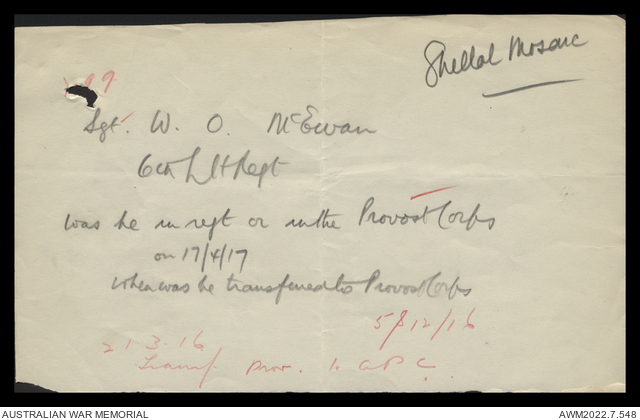 Shellal Mosaic
199
Sgt. W. O. McEwan
6th L H Regt
was he in regt or in the Provost Corps
on 17/4/17
when was he transferred to Provost Corps
5/12/16
21.3.16
Transf. Prov. 1. A P C.
AUSTRALIAN WAR MEMORIAL
AWM2022.7.548